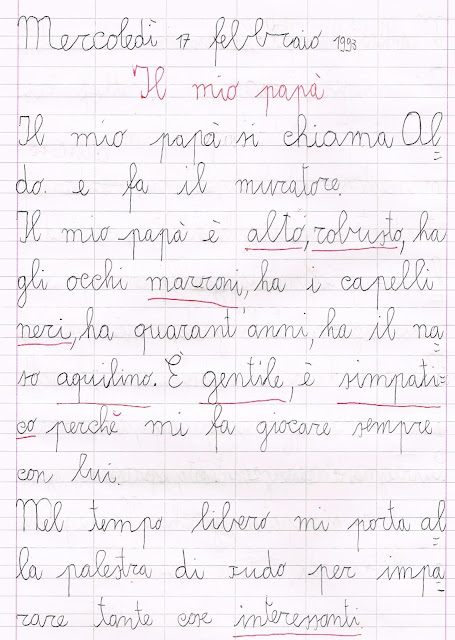 Mercoledì 17 febbraio 1993
Il mio papà
Il mio papà si chiama Al=
do. e fa il muratore.
Il mio papà è alto, robusto, ha
gli occhi marroni, ha i capelli
neri, ha quarant'anni, ha il na=
so aquilino. È gentile, è simpati=
co perchè mi fa giocare sempre
con lui.
Nel tempo libero mi porta al=
la palestra di judo per impa=
rare tante cose interessanti.